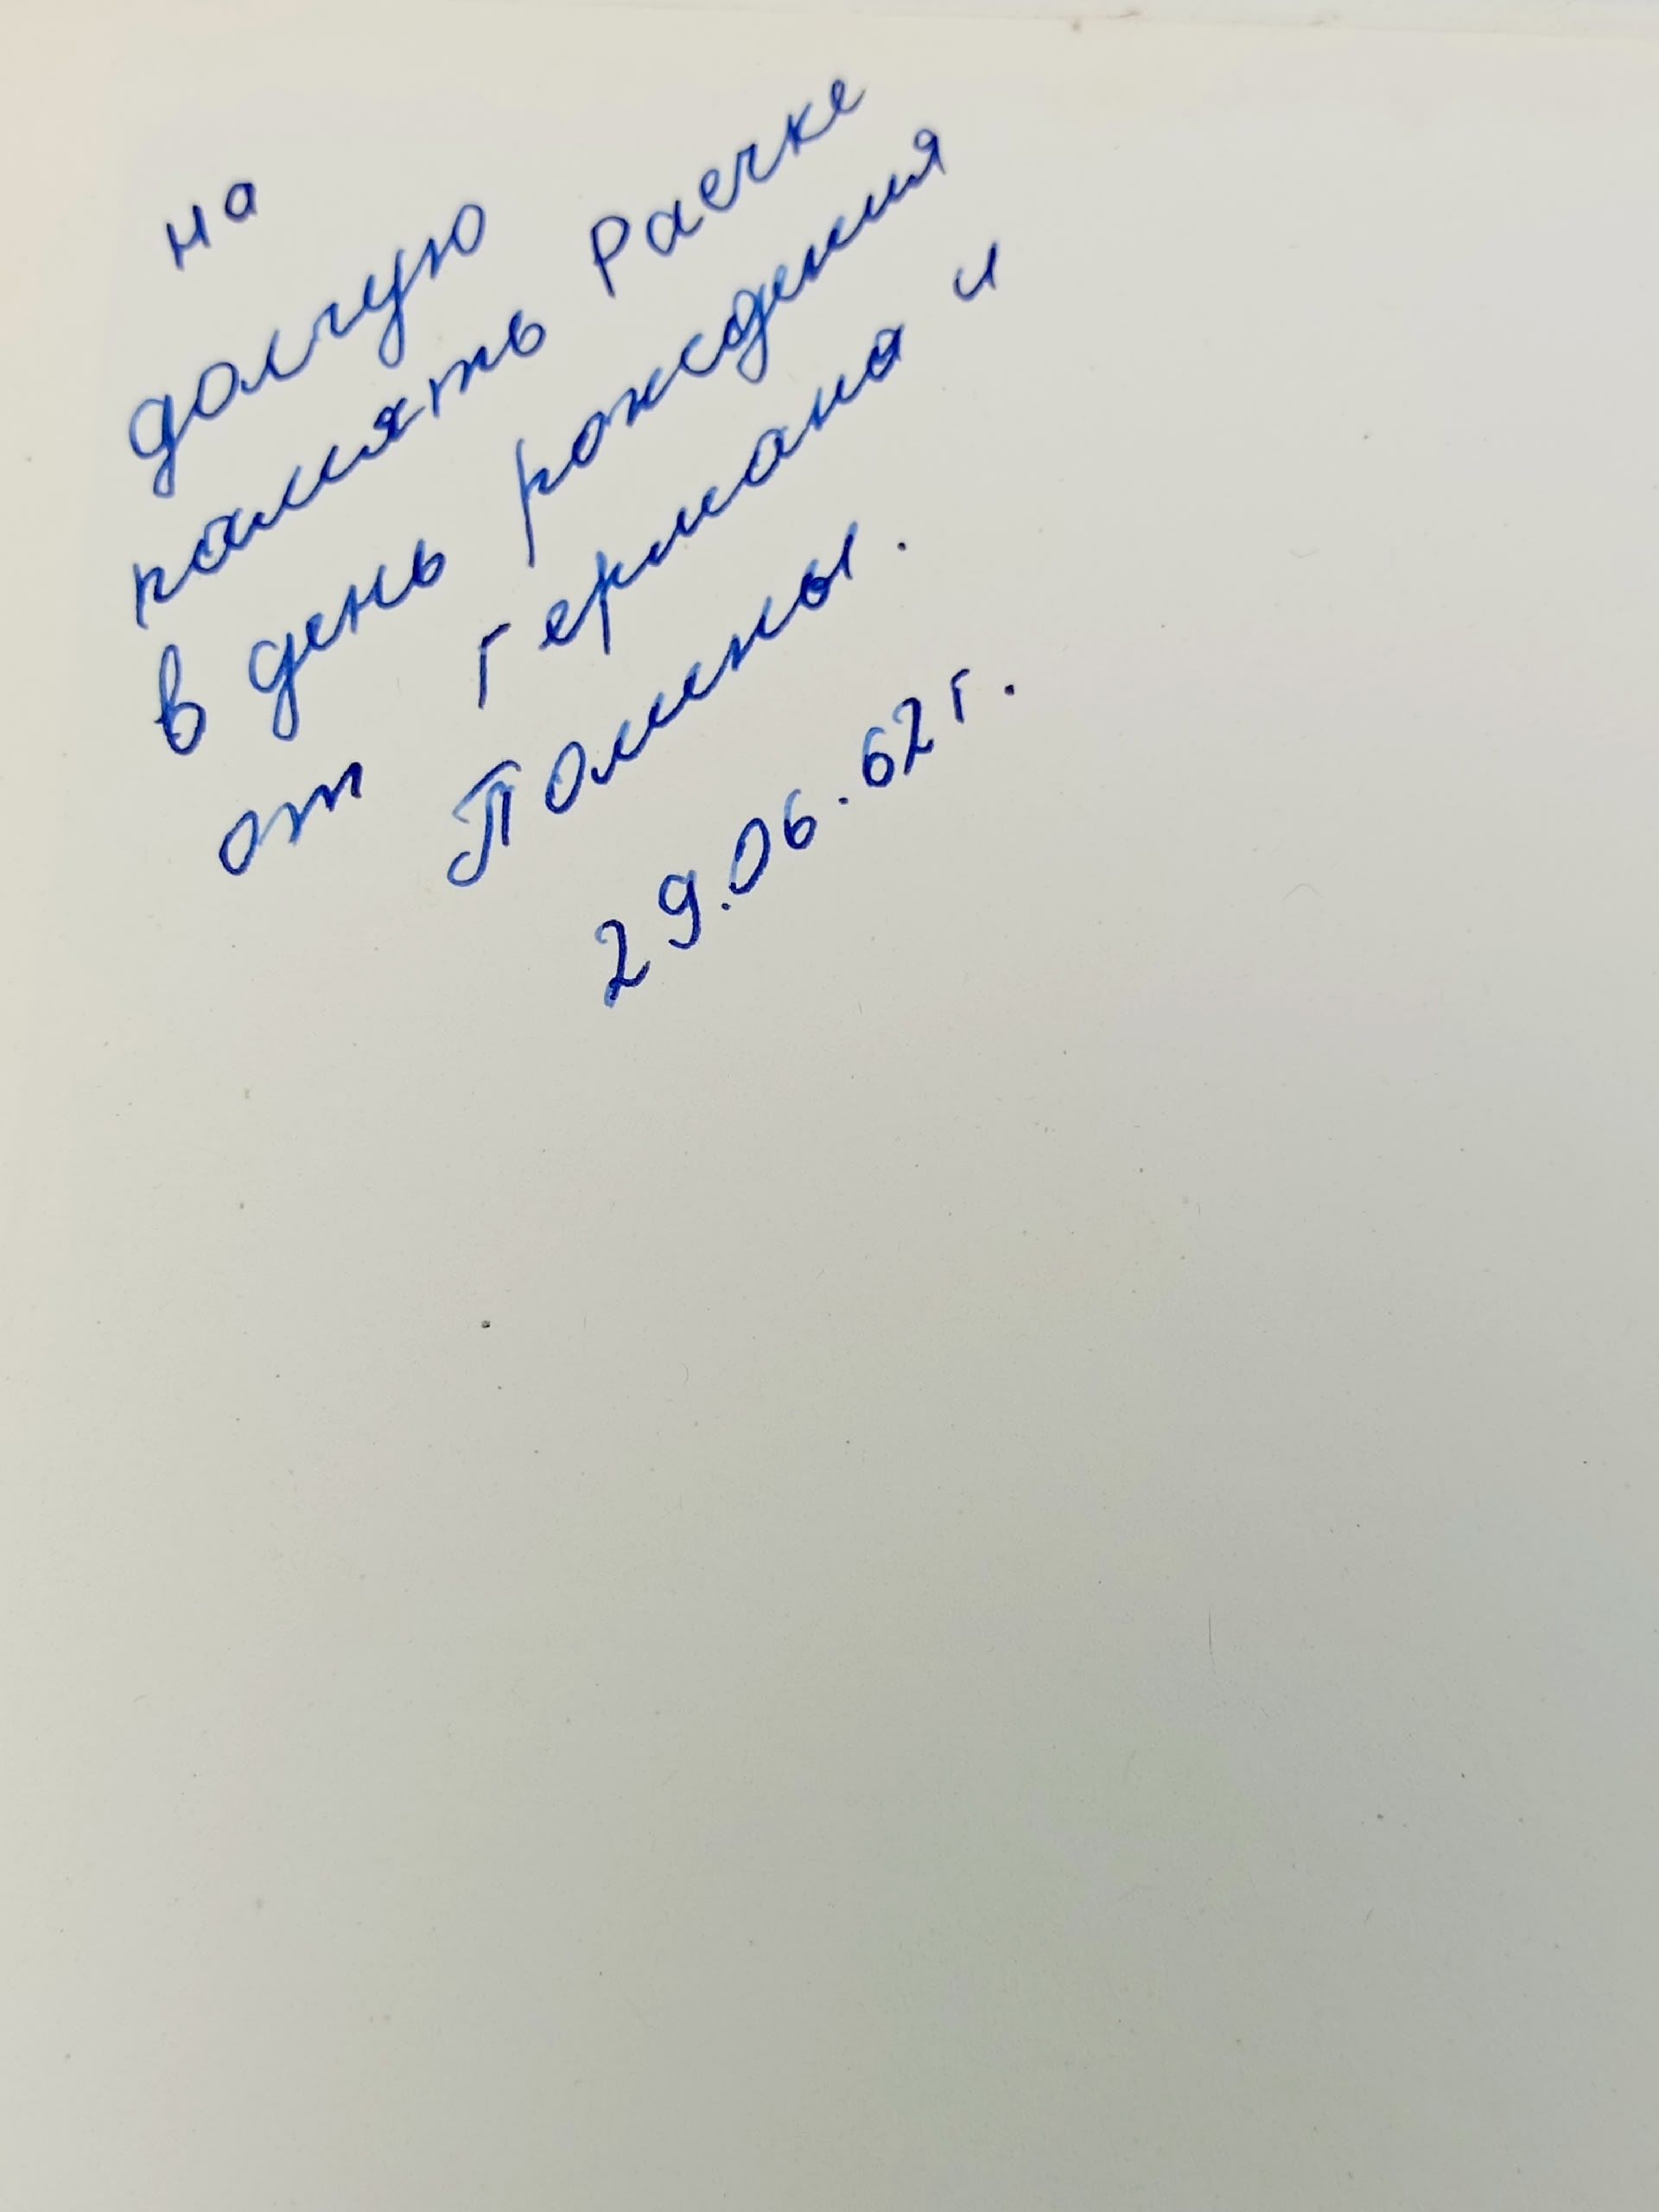 на
долгую
память Раечке
в день рождения
от Германа и
Полины.
29.06.62г.